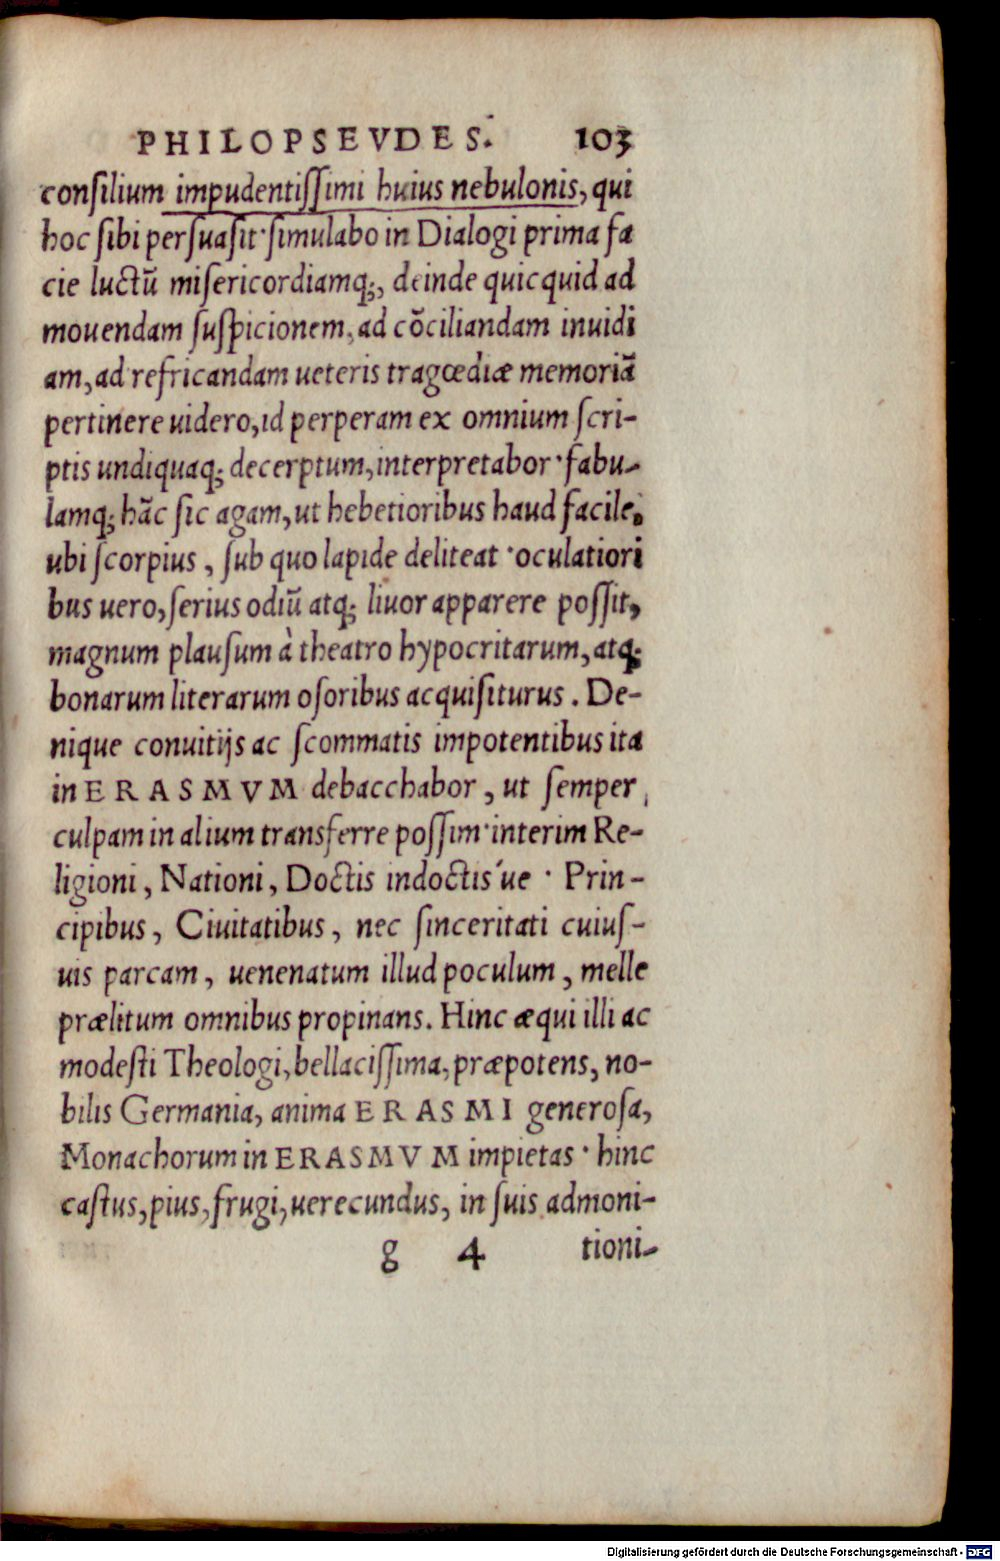 PHILOPSEVDES. 103
conſilium impudentiſſimi huius nebulonis, qui
hoc ſibi perſuaſit·ſimulabo in Dialogi prima fa
cie luctū miſericordiamq;, deinde quicquid ad
mouendam ſuſpicionem, ad cōciliandam inuidi
am, ad refricandam ueteris tragœdiæ memoriā
pertinere uidero, id perperam ex omnium ſcri-
ptis undiquaq; decerptum, interpretabor·fabu-
lamq; hāc ſic agam, ut hebetioribus haud facile,
ubi ſcorpius, ſub quo lapide deliteat·oculatiori
bus uero, ſerius odiū atq; liuor apparere poſſit,
magnum plauſum à theatro hypocritarum, atq;
bonarum literarum oſoribus acquiſiturus. De-
nique conuitijs ac ſcommatis impotentibus ita
in ERASMVM debacchabor, ut ſemper
culpam in alium transferre poſſim·interim Re-
ligioni, Nationi, Doctis indoctis'ue · Prin-
cipibus, Ciuitatibus, nec ſinceritati cuiuſ-
uis parcam, uenenatum illud poculum, melle
prælitum omnibus propinans. Hinc æqui illi ac
modeſti Theologi, bellaciſſima, præpotens, no-
bilis Germania, anima ERASMI generoſa,
Monachorum in ERASMVM impietas · hinc
caſtus, pius, frugi, uerecundus, in ſuis admoni-
g 4 tioni-
Digitalisierung gefördert durch die Deutsche Forschungsgemeinschaft - DFG